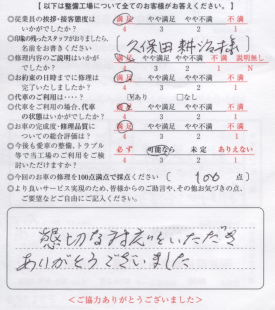 【以下は整備工場について全てのお客様がお答えください。】
◎従業員の挨拶・接客態度は 満足 やや満足 やや不満 不満
いかがでしたか？ 4 3 2 1
◎印象の残ったスタッフがおりましたら、
名前をお書きください [久保田耕治様]
◎修理内容のご説明はいかが 満足 やや満足 やや不満 不満 説明無し
でしたか？ 4 3 2 1 N
◎お約束の日時までに修理は 満足 やや満足 やや不満 不満
完了いたしましたか？ 4 3 2 1
◎代車のご利用は・・・？ ☑あり □なし
◎代車をご利用の場合、代車 満足 やや満足 やや不満 不満
の状態はいかがでしたか？ 4 3 2 1
◎お車の完成度・修理品質に 満足 やや満足 やや不満 不満
ついての総合評価は？ 4 3 2 1
◎今後も愛車の整備、トラブル 必ず 可能なら 未定 ありえない
等で当工場のご利用をご検 4 3 2 1
討いただけますか？
◎今回のお車の修理を100満点で採点ください [100 点]
◎より良いサービス実現のため、皆様からのご助言や、その他お気づきの点、
ご要望などご自由にご記入ください。
懇切な対応をいただき
ありがとうございました
＜ご協力ありがとうございました＞